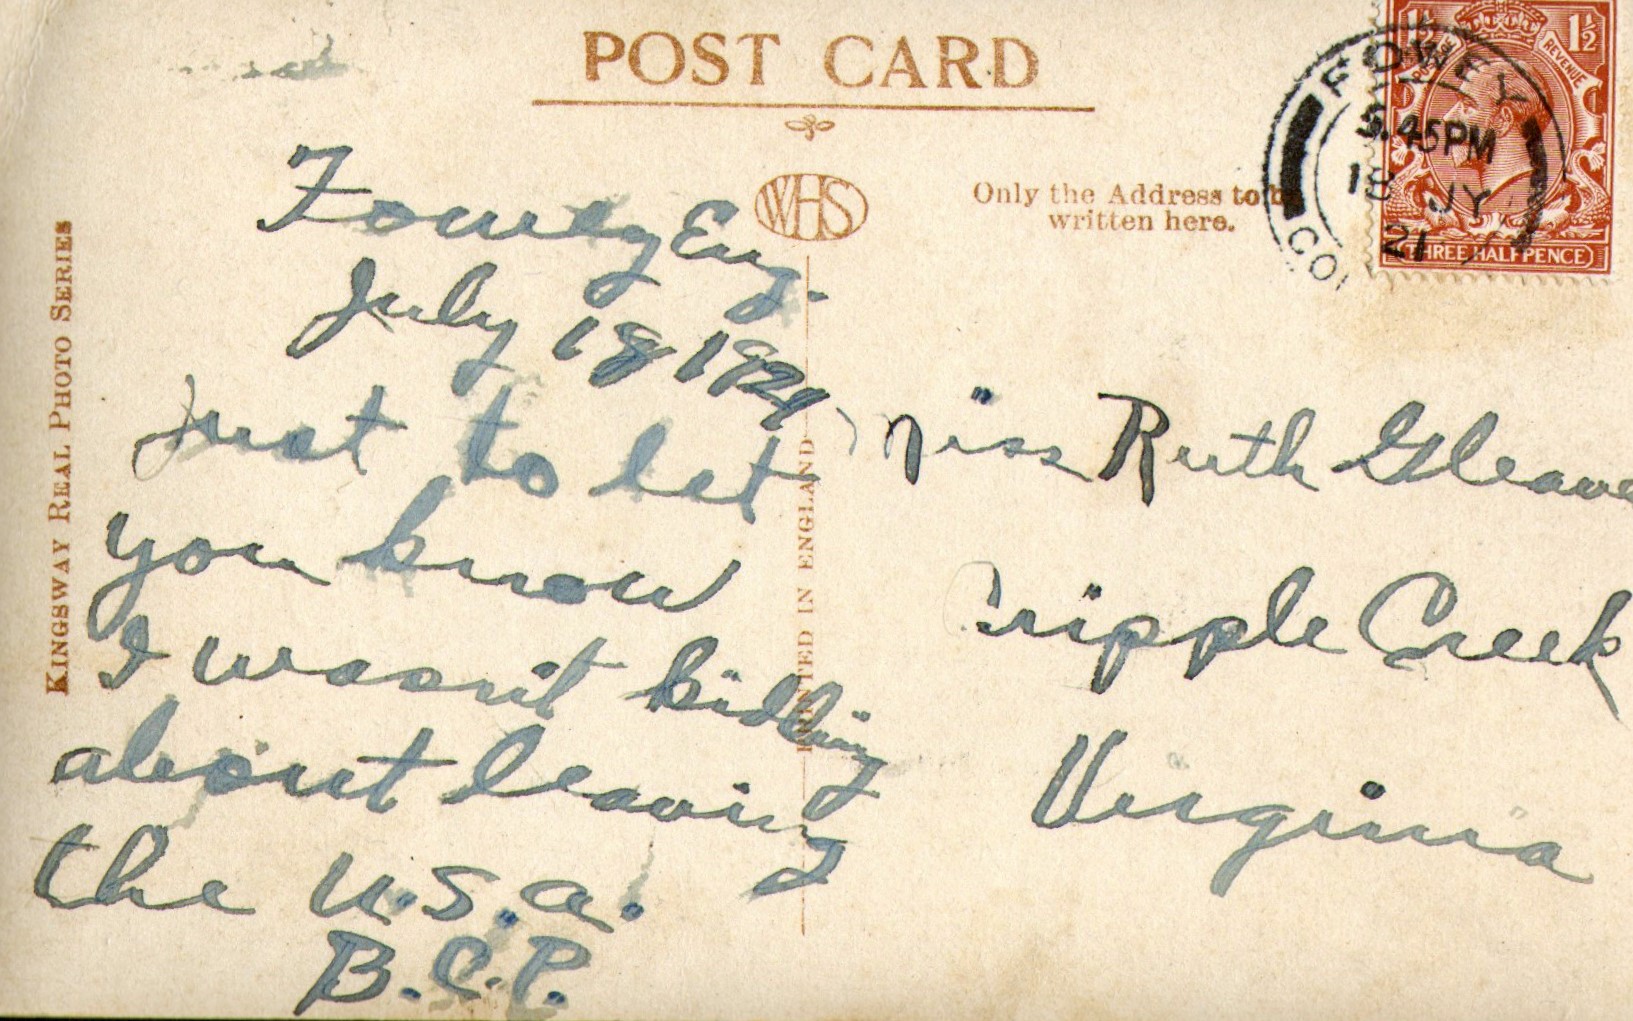 POST CARD
WHS
Only the Address to be
written here.
KINGSWAY REAL PHOTO SERIES
PRINTED IN ENGLAND
1½ 1½
POSTAGE REVENUE
THREE HALFPENCE
FOWEY
3.45PM
18 JY
21
CO
Fowey Eng.
July 18 1921
Just to let
you know
I wasn't kidding
about leaving
the U.S.A.
B.C.P.
Miss Ruth Gleave
Cripple Creek
Virginia